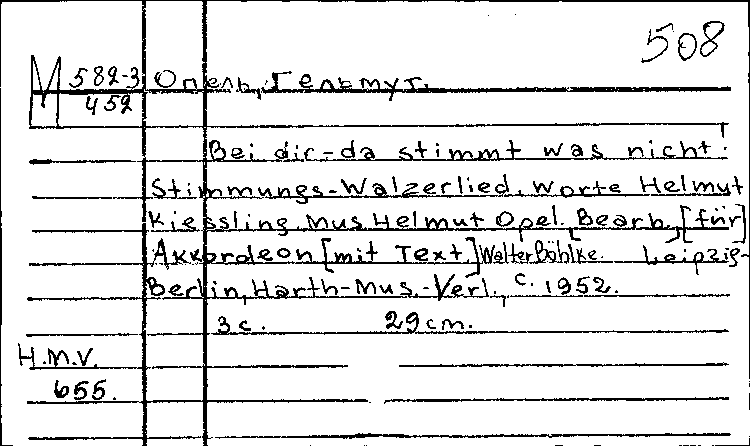 508
М 582-3 Опель, Гельмут.
452
Bei dir-da stimmt was nicht!
Stimmungs-Walzerlied. Worte Helmut
Kiessling. Mus Helmut Opel. Bearb. [für]
Akkordeon [mit Text.] Walter Böhlke. Leipzig-
Berlin, Harth-Mus.-Verl., c. 1952.
3 c. 29 cm.
H.M.V.
655.